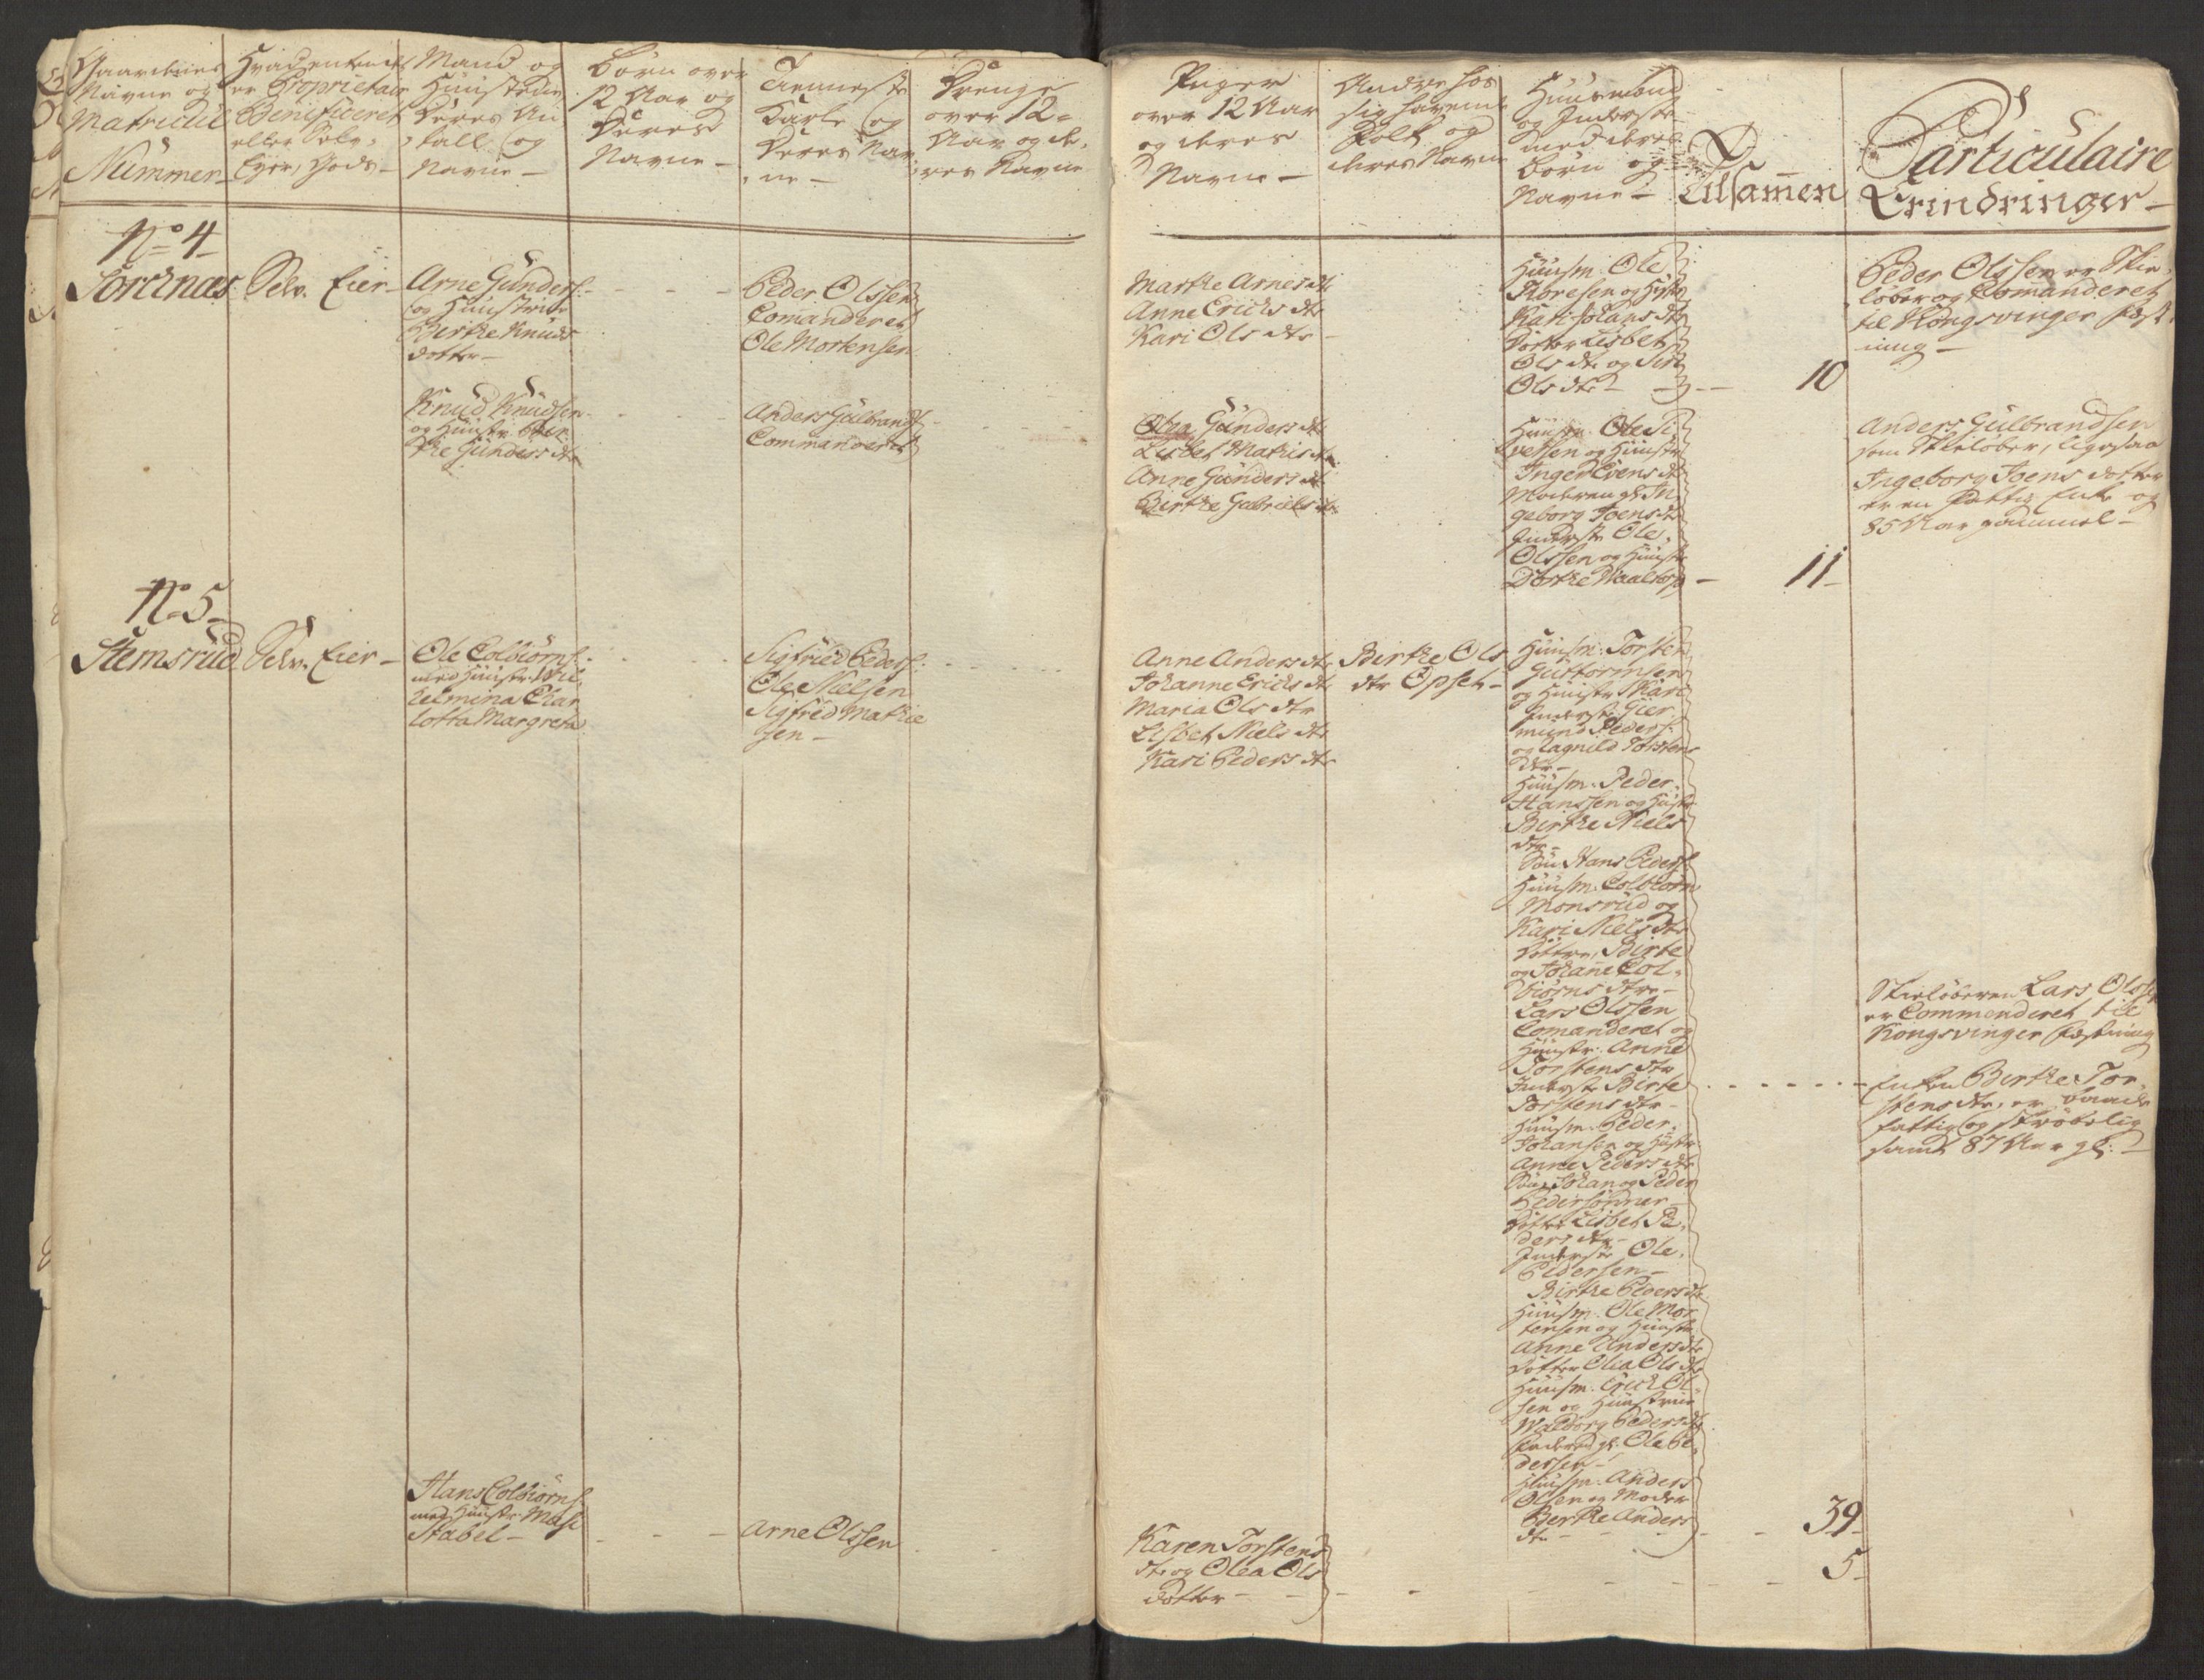 Gaardenes
Navne og
Matricul
Nummer
Hvad enten det
er Proprietair
Beneficeret
eller Selv-
Eger, Gods
Mand og
Hüüstrue
Deres An
tall og
Navne
Børn over
12 Aar og
Deres
Navne
Tienneste
Karle og
Deres Nav
ne
Drenge
over 12
Aar og de-
res Navne
Piger
over 12 Aar
og deres
Navne
Andre hos
sig havende
Folk og
deres Navne
Huusmænd
og Inderste
med deres
Børn og
Navne
Tilsamen
Particulaire
Erindringer
No 4
Sordnæs Selv. Eier
Arne Gunders:
og Hüüstrue
Berthe Knuds
dotter
Peder Olssen
Comanderet
Ole Mortensen
Marthe Arnes dtr
Anne Erichs dtr
Kari Ols dtr
Hüüsm. Ole
Thoresen og Hüstr
Kari Johans dtr
Dotter Lisbet
Ols dtr og Siri
Ols dtr
10
Peder Olssen er Skie
løber og Comanderet
til Kongsvinger Fæst
ning
Knud Knudsen
og Hüüstr Ber
the Gunders dtr
Anders Gulbrands
Commanderet
Olea Gunders dtr
Lisbet Mathis dtr
Anne Gunders dtr
Birthe Gabriels dtr
Hüüsm. Ole Si
versen og Hüüstr
Inger Evens dtr
Moderen gl. In
geborg Joens dtr
Inderste Ole
Olssen og Hüüstr
Dorthe
11
Anders Gulbrandsen
som Skieløber, ligesaa
Ingeborg Joens dotter
er en Fattig Enke og
85 Aar gammel
No 5
Stemsrud Selv. Eier
Ole Colbiørns:
med Hüüstr. Wil
helmina Char
lotta Margreta
Sigfried Peders:
Ole Nielsen
Sigfred Mathie
sen
Anne Anders dtr
Johanne Erichs dtr
Maria Ols dtr
Lisbet Niels dtr
Kari Peders dtr
Birthe Ols
dtr Opset
Hüüsm. Torsten
Guttormsen
og Hüüstr Kari
Inderste Gier
mund Peders:
og Ragnild Torstens
dtr
Hüüsm. Peder
Hanssen og Hustr
Birthe Niels
dtr
Søn Hans Peders:
Hüüsm. Colbiørn
Monsrud og
Kari Niels dtr
Døttre, Birte
og Johane Col-
biørns dtre
Lars Olssen
Comanderet og
Hüüstr. Anne
Torstens dtr
Inderste Birte
Torstens dtr
Hüüsm. Peder
Johansen og Hustr
Anne Peders dtr
Sön Johan og Peder
Pedersönner
Dotter Lisbet Pe-
ders dtr
Inderste Ole
Pedersen
Birthe Peders dtr
Hüüsm. Ole Mor
tensen og Hüüstr
Anne Anders dtr
Dotter Olea Ols dtr
Hüüsm. Erich Ol-
sen og Hüüstrue
Walborg Peders dtr
Faderen gl. Ole Pe-
dersen
Hüüsm. Anders
Olsen og Moder
Berthe Anders
dtr
39
Skieløberen Lars Olssen
er Commenderet til
Kongsvinger Fæstning
Enken Birthe Tor-
stens dtr, er baade
fattig og skrøbelig
samt 87 Aar gl:
Hans Colbiørns:
med Hüüstr Mari
Stabel
Arne Olssen
Karen Torstens
dtr og Olea Ols
dotter
5